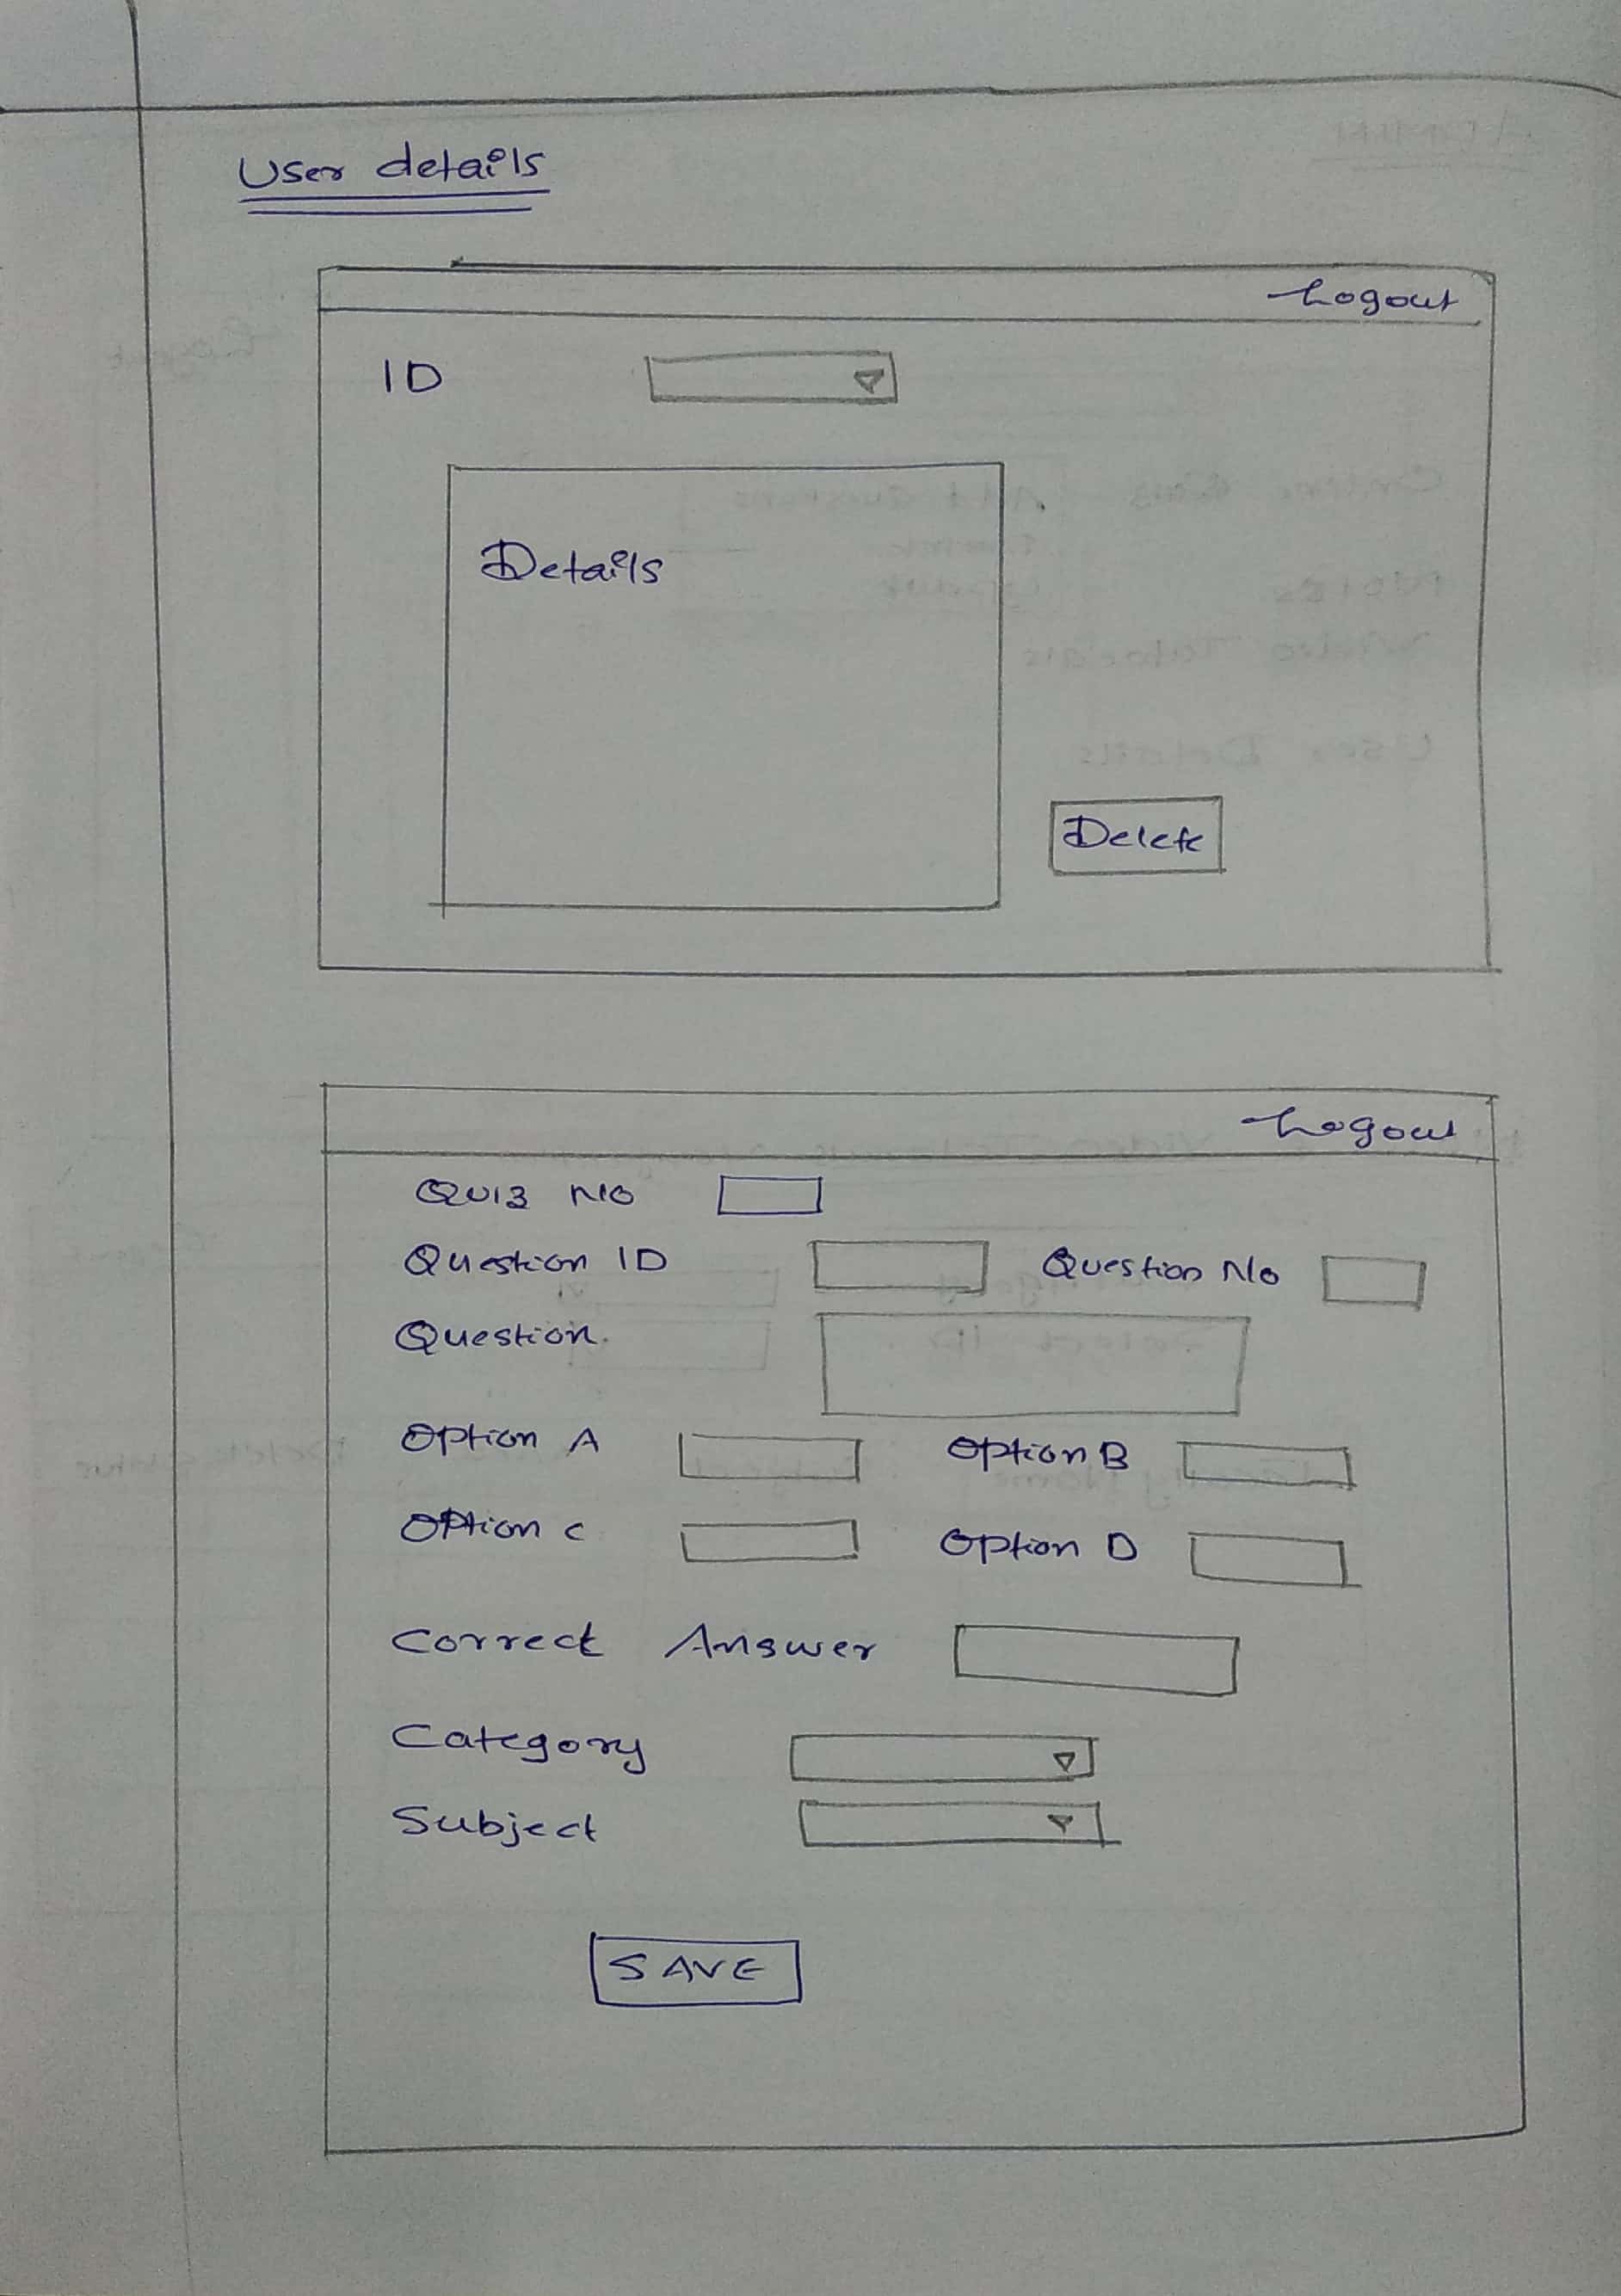 User details
Logout
ID
Details
Delete
Logout
Quiz No
Question ID Question No
Question.
Option A Option B
Option C Option D
Correct Answer
Category
Subject
SAVE